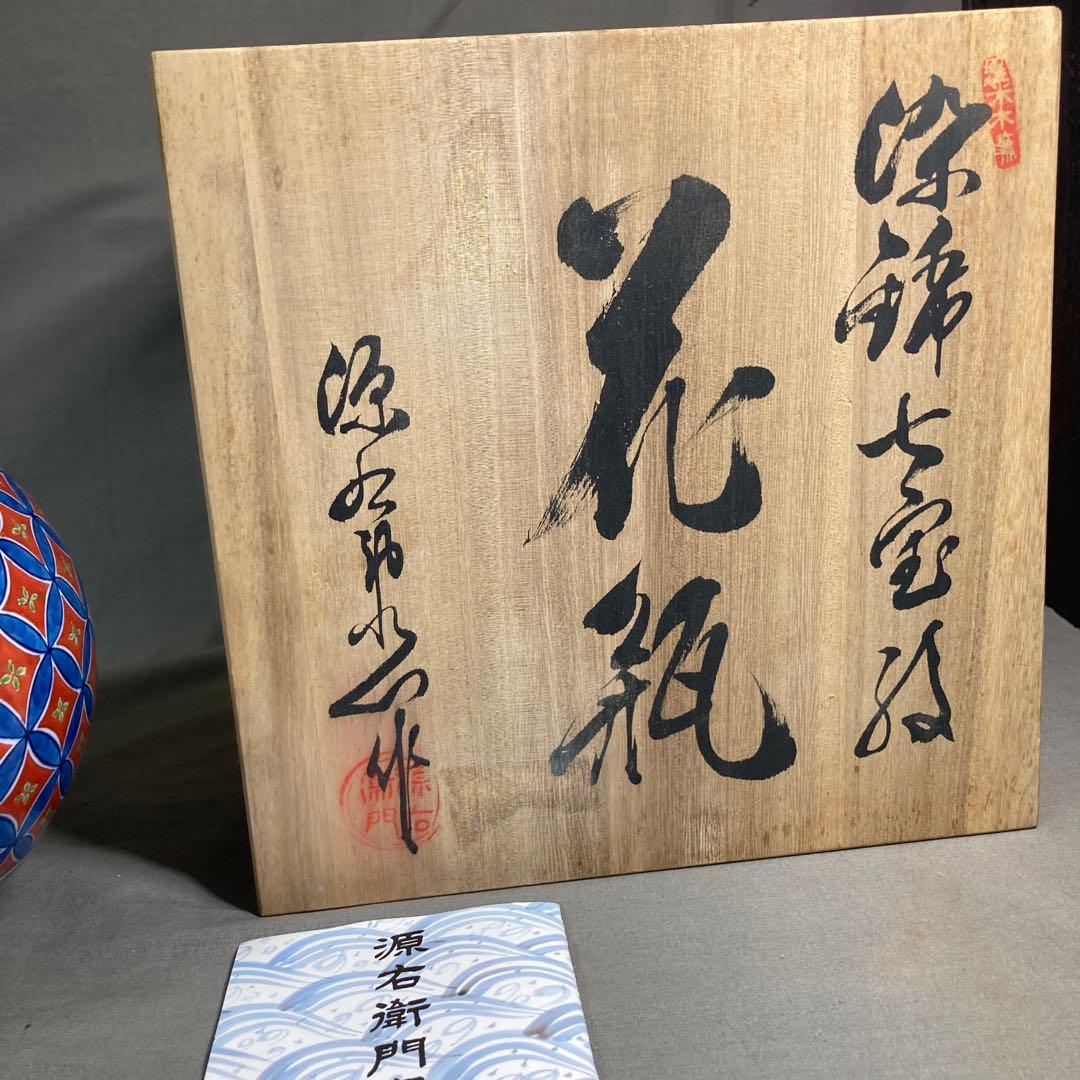 染錦七宝紋
花瓶
源右衛門作
源右
衛門
源右衛門